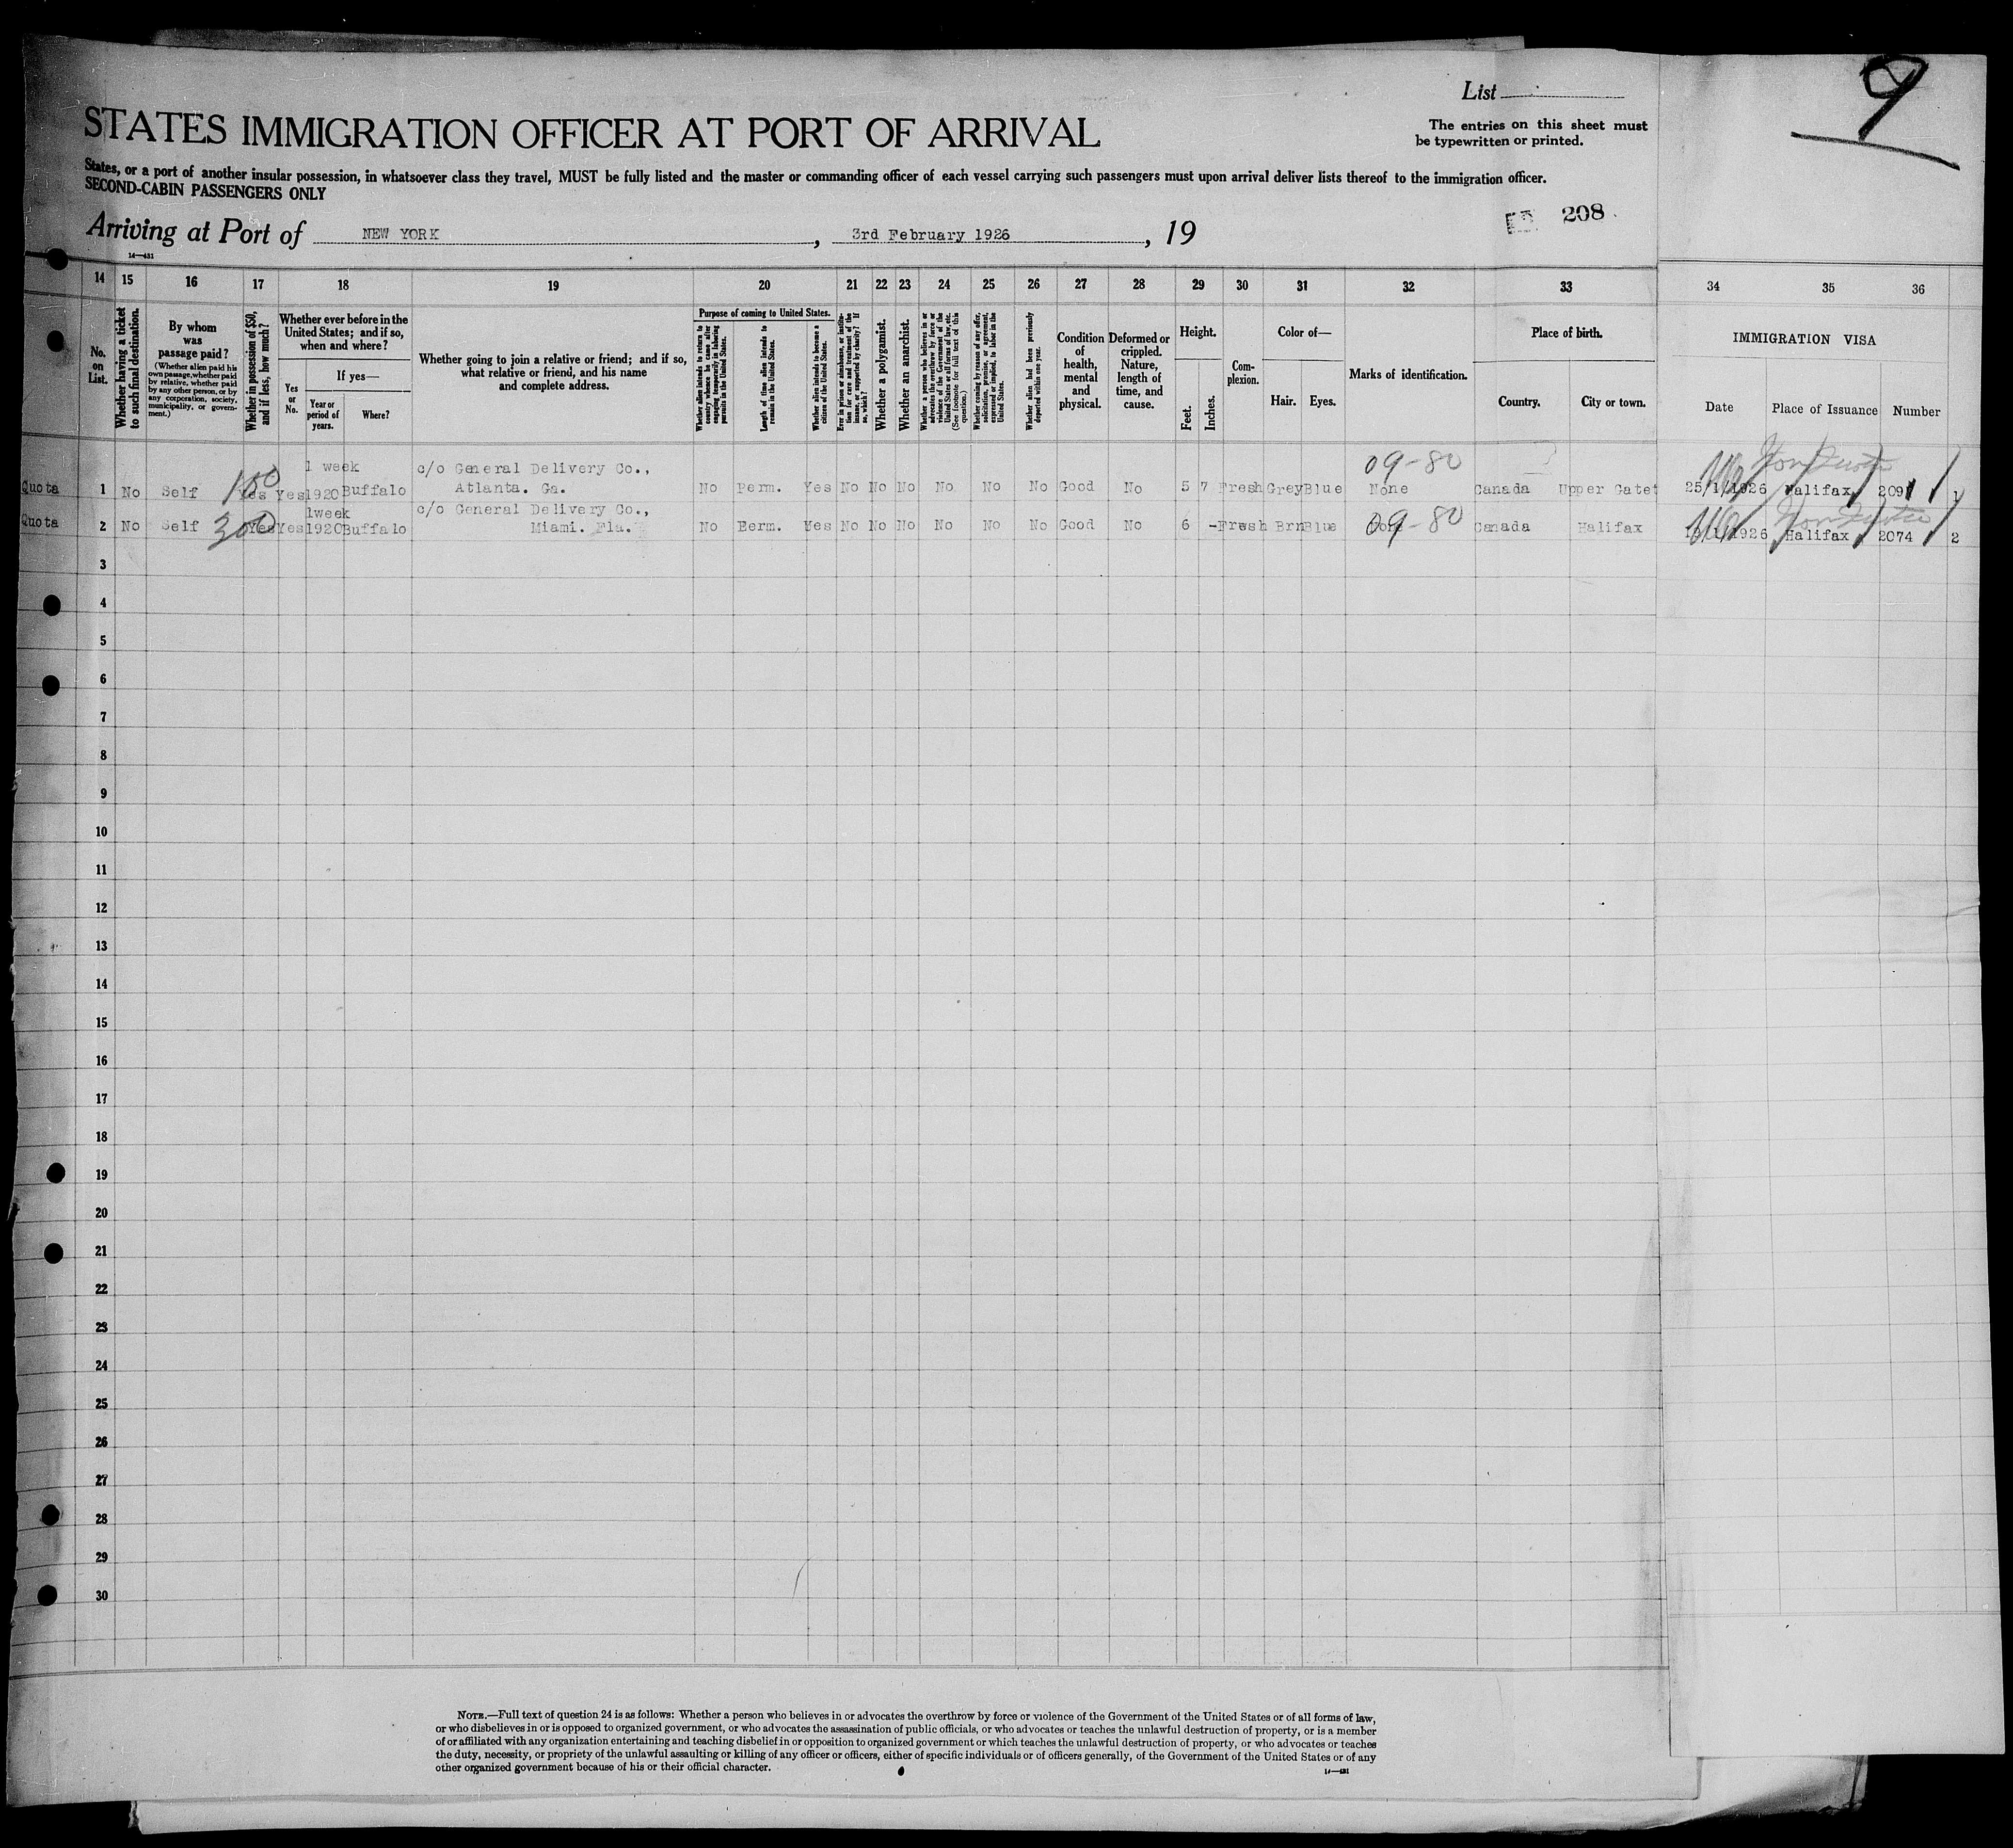 9
List
The entries on this sheet must
be typewritten or printed.
STATES IMMIGRATION OFFICER AT PORT OF ARRIVAL
States, or a port of another insular possession, in whatsoever class they travel, MUST be fully listed and the master or commanding officer of each vessel carrying such passengers must upon arrival deliver lists thereof to the immigration officer.
SECOND-CABIN PASSENGERS ONLY
208
Arriving at Port of NEW YORK, 3rd February 1926, 19
14—431
14 15 16 17 18 19 20 21 22 23 24 25 26 27 28 29 30 31 32 33 34 35 36
No. on List.
Whether having a ticket to such final destination.
By whom was passage paid?
(Whether alien paid his own passage, whether paid by relative, whether paid by any other person, or by any corporation, society, municipality, or government.)
Whether in possession of $50, and if less, how much?
Whether ever before in the United States; and if so, when and where?
Yes or No.
If yes—
Year or period of years.
Where?
Whether going to join a relative or friend; and if so, what relative or friend, and his name and complete address.
Purpose of coming to United States.
Whether alien intends to return to country whence he came after engaging temporarily in laboring pursuits in the United States.
Length of time alien intends to remain in the United States.
Whether alien intends to become a citizen of the United States.
Ever in prison or almshouse, or institution for care and treatment of the insane, or supported by charity? If so, which?
Whether a polygamist.
Whether an anarchist.
Whether a person who believes in or advocates the overthrow by force or violence of the Government of the United States or all forms of law, etc. (See footnote for full text of this question.)
Whether coming by reason of any offer, solicitation, promise, or agreement, expressed or implied, to labor in the United States.
Whether alien had been previously deported within one year.
Condition of health, mental and physical.
Deformed or crippled. Nature, length of time, and cause.
Height.
Feet.
Inches.
Complexion.
Color of—
Hair.
Eyes.
Marks of identification.
Place of birth.
Country.
City or town.
IMMIGRATION VISA
Date
Place of Issuance
Number
1 week c/o General Delivery Co., 09-80
Quota 1 No Self 100 Yes Yes 1920 Buffalo Atlanta. Ga. No Perm. Yes No No No No No No Good No 5 7 Fresh Grey Blue None Canada Upper Gatet 25/1/1926 Halifax 2091 1
1week c/o General Delivery Co.,
Quota 2 No Self 300 Yes Yes 1920 Buffalo Miami. Fla. No Perm. Yes No No No No No No Good No 6 - Fresh Brn Blue 09-80 Canada Halifax 1926 Halifax 2074 2
3
4
5
6
7
8
9
10
11
12
13
14
15
16
17
18
19
20
21
22
23
24
25
26
27
28
29
30
NOTE.—Full text of question 24 is as follows: Whether a person who believes in or advocates the overthrow by force or violence of the Government of the United States or of all forms of law,
or who disbelieves in or is opposed to organized government, or who advocates the assassination of public officials, or who advocates or teaches the unlawful destruction of property, or is a member
of or affiliated with any organization entertaining and teaching disbelief in or opposition to organized government or which teaches the unlawful destruction of property, or who advocates or teaches
the duty, necessity, or propriety of the unlawful assaulting or killing of any officer or officers, either of specific individuals or of officers generally, of the Government of the United States or of any
other organized government because of his or their official character.
14—431